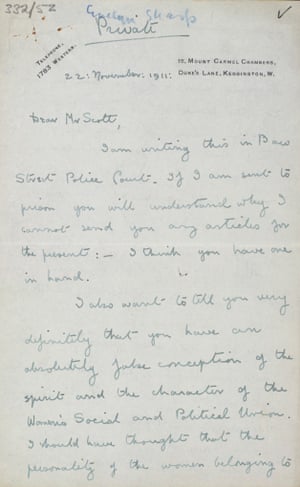 332/52
Evelyn Sharp
Private
TELEPHONE,
1783 WESTERN.
15, MOUNT CARMEL CHAMBERS,
DUKE'S LANE, KENSINGTON, W.
22: November: 1911:
Dear Mr Scott,
I am writing this in Bow
Street Police Court. If I am sent to
prison you will understand why I
cannot send you any articles for
the present: — I think you have one
in hand.
I also want to tell you very
definitely that you have an
absolutely false conception of the
spirit and the character of the
Women's Social and Political Union.
I should have thought that the
personality of the women belonging to